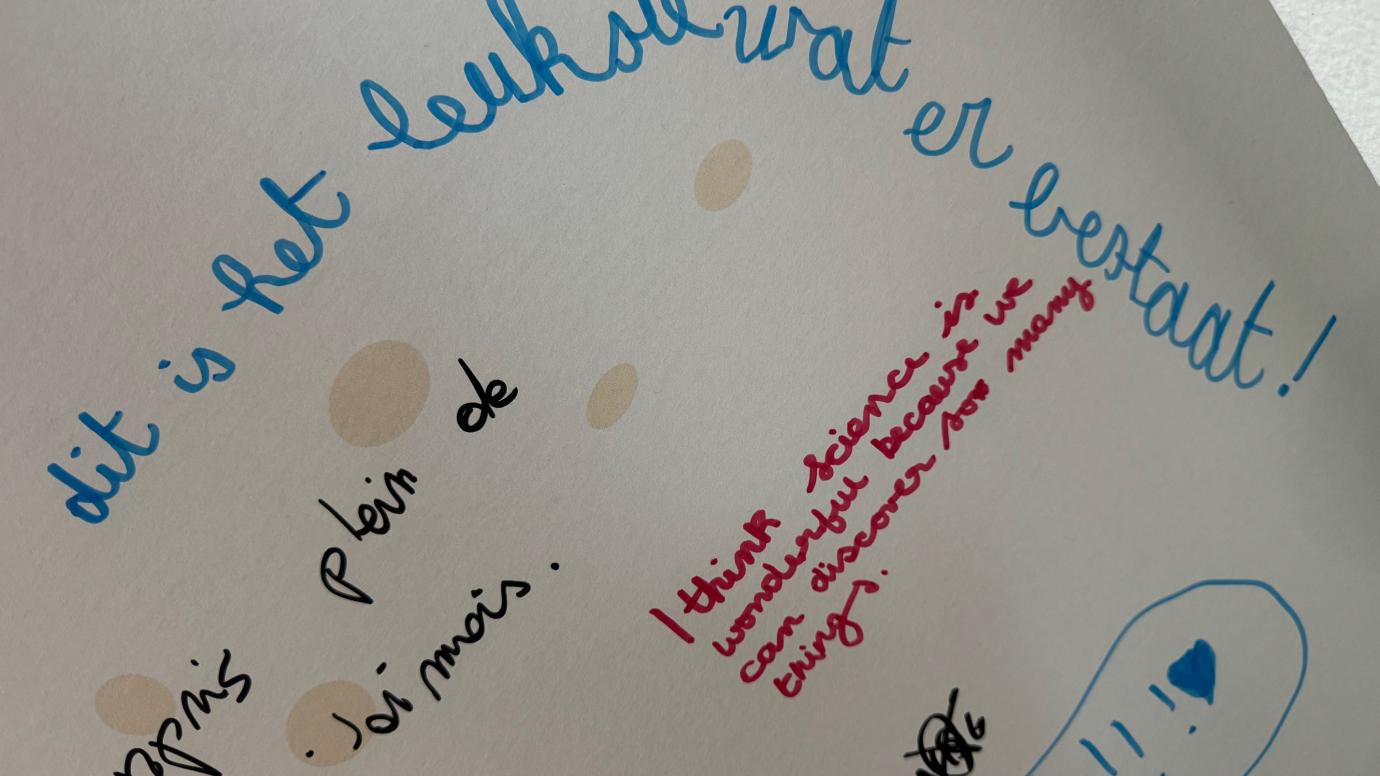 dit is het leukste wat er bestaat!
plein de
I think science is
wonderful because we
can discover sow many
things.